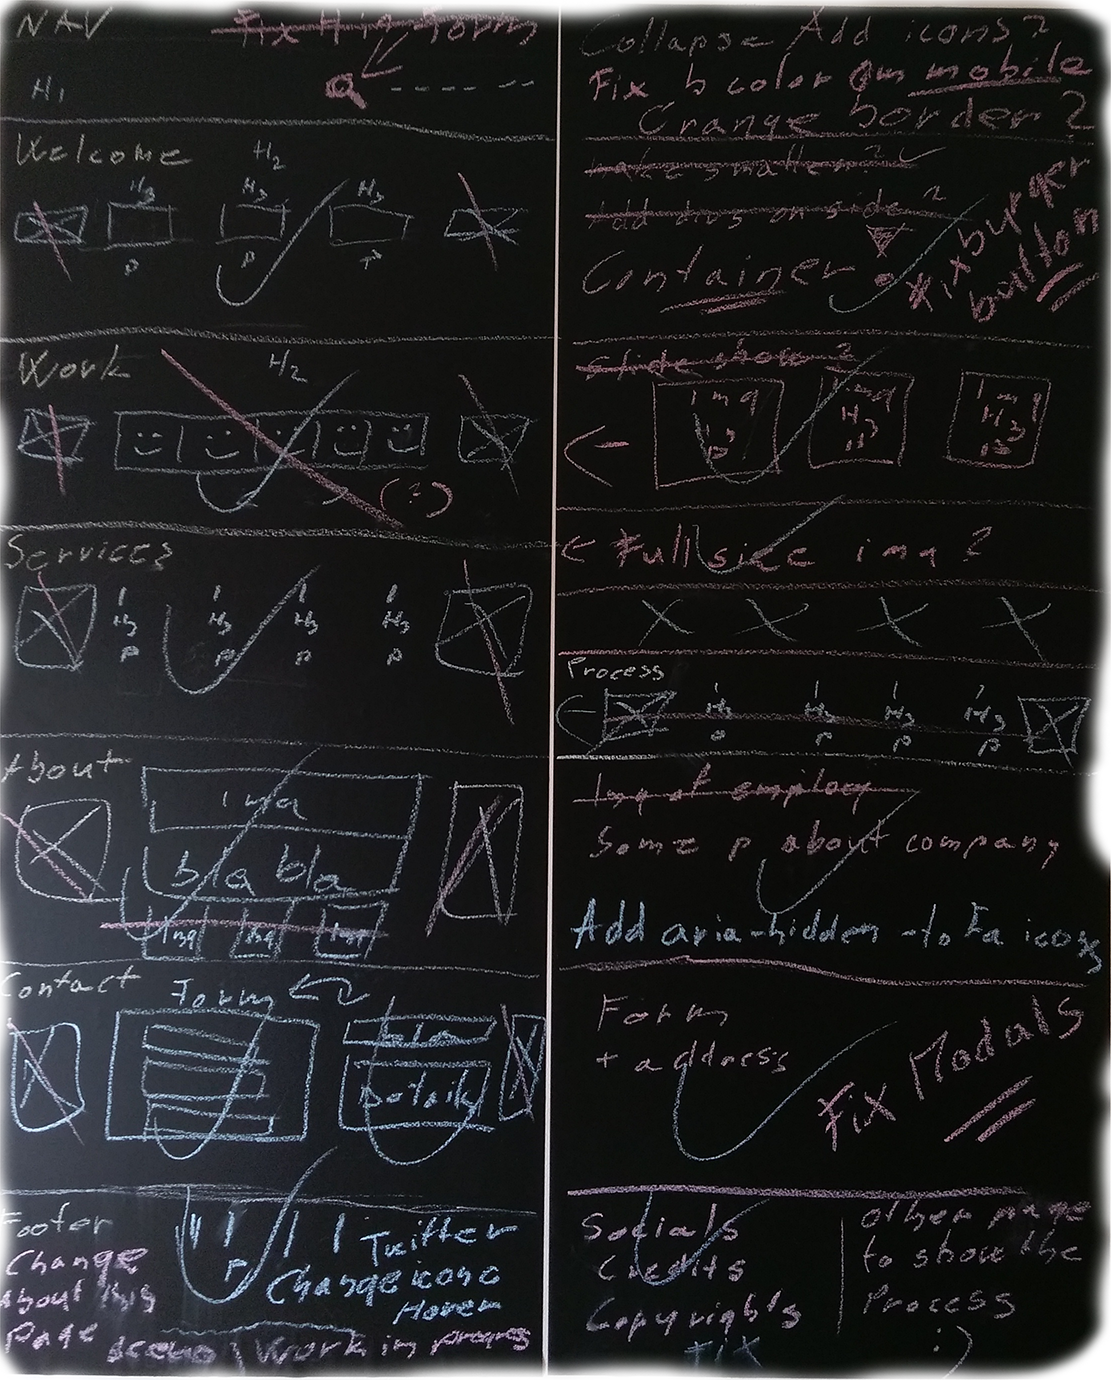 NAV Fix H in form
H1
Welcome H2
H3 H3 H3
P P P
Work H2
(?)
Services
H3 H3 H3 H3
P P P P
About
img
bla bla
Img Img Img
Contact Form
Details
Footer
Twitter
Change
Change icono
About this
Hover
Page Work in progres
Collapse Add icons?
Fix b color on mobile
Orange border?
make smaller??
Add divs on side?
Container
Fix burger
button
Slide show?
Img Img Img
H3 H3 H3
P P P
Full size img?
X X X X
Process
H3 H3 H3 H3
P P P P
Img of employ
Some p about company
Add aria-hidden -to Fa icons
Form
+ address
Fix Modals
Socials
Credits
Copyrights
Fix
other page
to show the
Process
:)